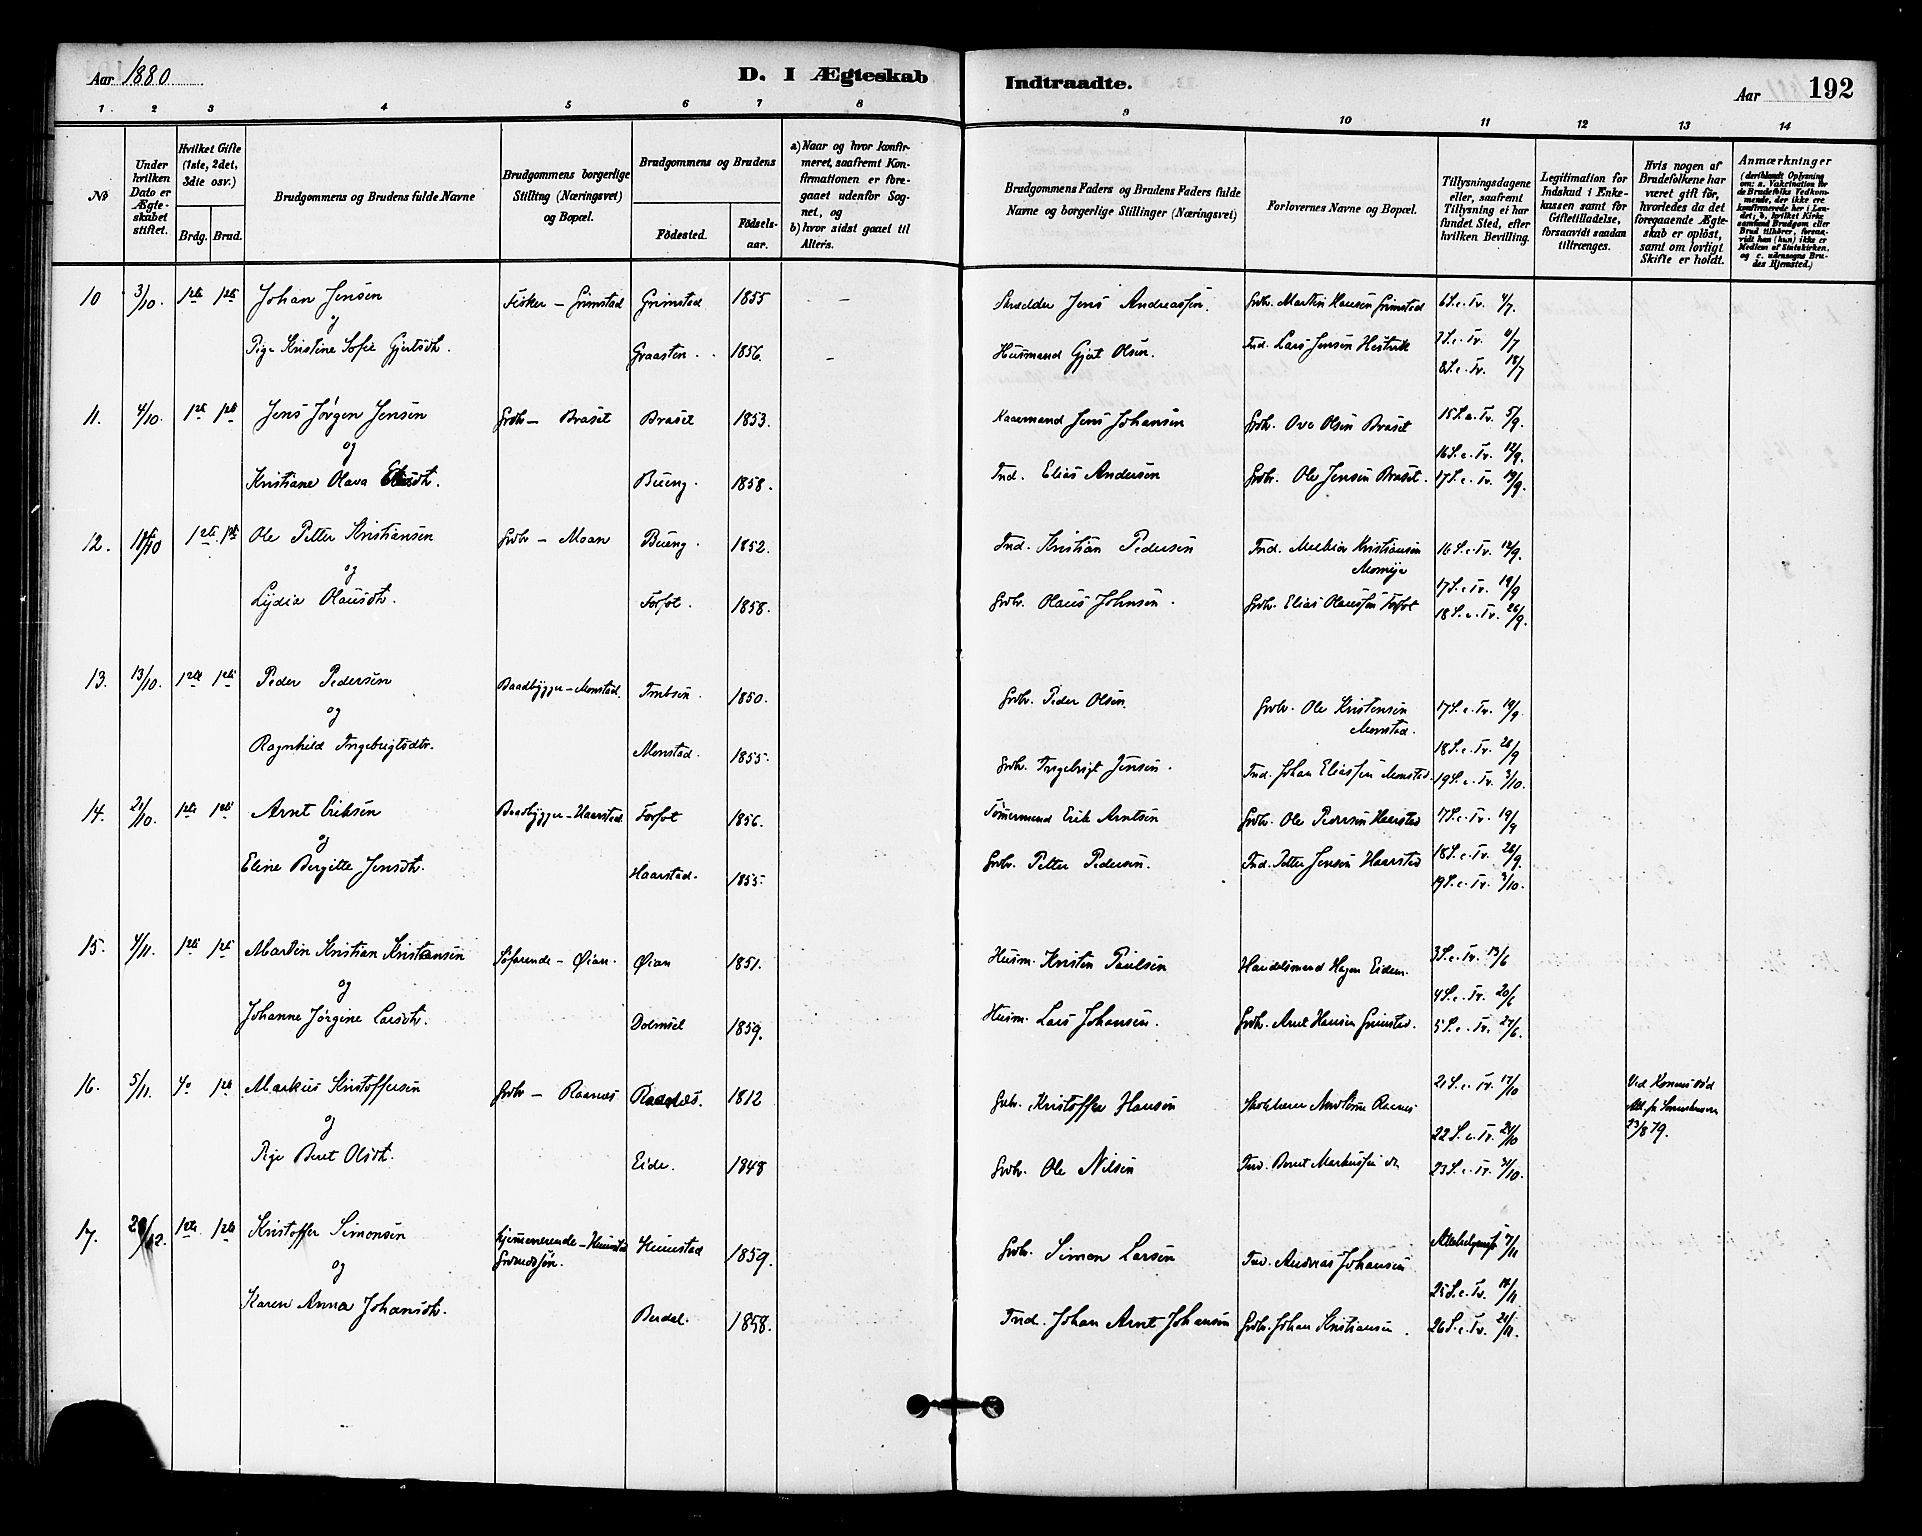 Aar 1880
D. I Ægteskab
Indtraadte.
Aar
192
1. 2 3 4 5 6 7 8 9 10 11 12 13 14
No
Under hvilken Dato er Ægteskabet stiftet.
Hvilket Gifte (1ste, 2det, 3die osv.)
Brdg. Brud.
Brudgommens og Brudens fulde Navne
Brudgommens borgerlige Stilling (Næringsvei) og Bopæl.
Brudgommens og Brudens
Födested.
Födsels-aar.
a) Naar og hvor konfirmeret, saafremt Konfirmationen er foregaaet udenfor Sognet, og
b) hvor sidst gaaet til Alters.
Brudgommens Faders og Brudens Faders fulde Navne og borgerlige Stillinger (Næringsvei)
Forlovernes Navne og Bopæl.
Tillysningsdagene eller, saafremt Tillysning ei har fundet Sted, efter hvilken Bevilling.
Legitimation for Indskud i Enkekassen samt for Giftetilladelse, forsaavidt saadan tiltrænges.
Hvis nogen af Brudefolkene har været gift för, hvorledes da det foregaaende Ægteskab er oplöst, samt om lovligt Skifte er holdt.
Anmærkninger
10 3/10 1ste 1ste Johan Jensen Fisker – Grimstad Grimstad 1855 – Skrædder Jens Andreassen. Grdbr. Martin Hansen Grimstad 6 S. e. Tr. 4/7.
og
Pige Kristine Sofie Gjertsdtr. Graasten 1856. – Husmand Gjert Olsen. Ind. Lars Jensen 7 S. e. Tr. 11/7
8 S. e. Tr. 18/7
11. 4/10 1ste 1ste Jens Jørgen Jensen Grdbr – Braset Braset 1853. Kaarmand Jens Johansen Grdbr. Ove Olsen Braset 15 S. e. Tr. 5/9.
og 16 S. e. Tr. 12/9.
Kristiane Olava Bueng. 1858. Ind. Elias Andersen Grdbr. Ole Jensen Braset. 17 S. e. Tr. 19/9.
12. 18/10 1ste 1ste Ole Petter Kristiansen Grdbr – Moan Bueng. 1852. Ind. Kristian Pedersen Ind. Melkior Kristiansen 16 S. e. Tr. 12/9.
og 17 S. e. Tr. 19/9
Lydia Olausdtr. Forfot. 1858. Grdbr. Olaus Johnsen. Grdbr. Elias Olaussen Forfot 18 S. e. Tr. 26/9.
13. 13/10. 1ste 1ste Peder Pedersen Baadbygger – Monstad. 1850. Grdbr. Peder Olsen. Grdbr. Ole Kristensen Monstad. 17 S. e. Tr. 19/9.
og 18 S. e. Tr. 26/9
Ragnhild Ingebrigtsdtr. Monstad. 1855. Grdbr. Ingebrigt Jensen. Ind. Johan Eliassen Monstad. 19 S. e. Tr. 3/10.
14. 21/10 1ste 1ste Arnt Eriksen Baadbygger – Haarstad. Forfot 1856. Tømermand Erik Arntsen Grdbr. Ole Pedersen Haarstad 17 S. e. Tr. 19/9
og 18 S. e. Tr. 26/9.
Eline Bergitte Jensdtr. Haarstad. 1855. Grdbr. Petter Pedersen. Ind. Petter Jensen Haarstad 19 S. e. Tr. 3/10.
15. 4/11. 1ste 1ste Martin Kristian Kristansen Søfarende – Øian. Øian 1851. Husm. Kristen Paulsen Handelsmand Hagen Eidem. 3 S. e. Tr. 13/6
og 4 S. e. Tr. 20/6
Johanne Jørgine Larsdtr. Dolmsel 1859. Husm. Lars Johansen. Grdbr. Arnt Hansen Grimstad. 5 S. e. Tr. 27/6.
16. 5/11. 1ste Markus Kristoffersen Grdbr – Raanæs Raanæs. 1812 Grdbr. Kristoffer Hansen 21 S. e. Tr. 17/10 Ved Konens Død
og 22 S. e. Tr. 24/10 23/8 79.
Pige Beret Olsdtr. Eide. 1848 Grdbr. Ole Nilsen Ind. Bernt Markussen 23 S. e. Tr. 31/10.
17. 12. 1ste 1ste Kristoffer Simonsen Hjemmeværende – Gaardmandssøn. 1859. Grdbr. Simon Larsen Ind. Andreas Johansen 7/11
og 25 S. e. Tr. 14/11
Karen Anna Johansdtr. Berdal. 1858. Ind. Johan Arnt Johansen Grdbr. Johan Kristiansen. 26 S. e. Tr. 21/11.